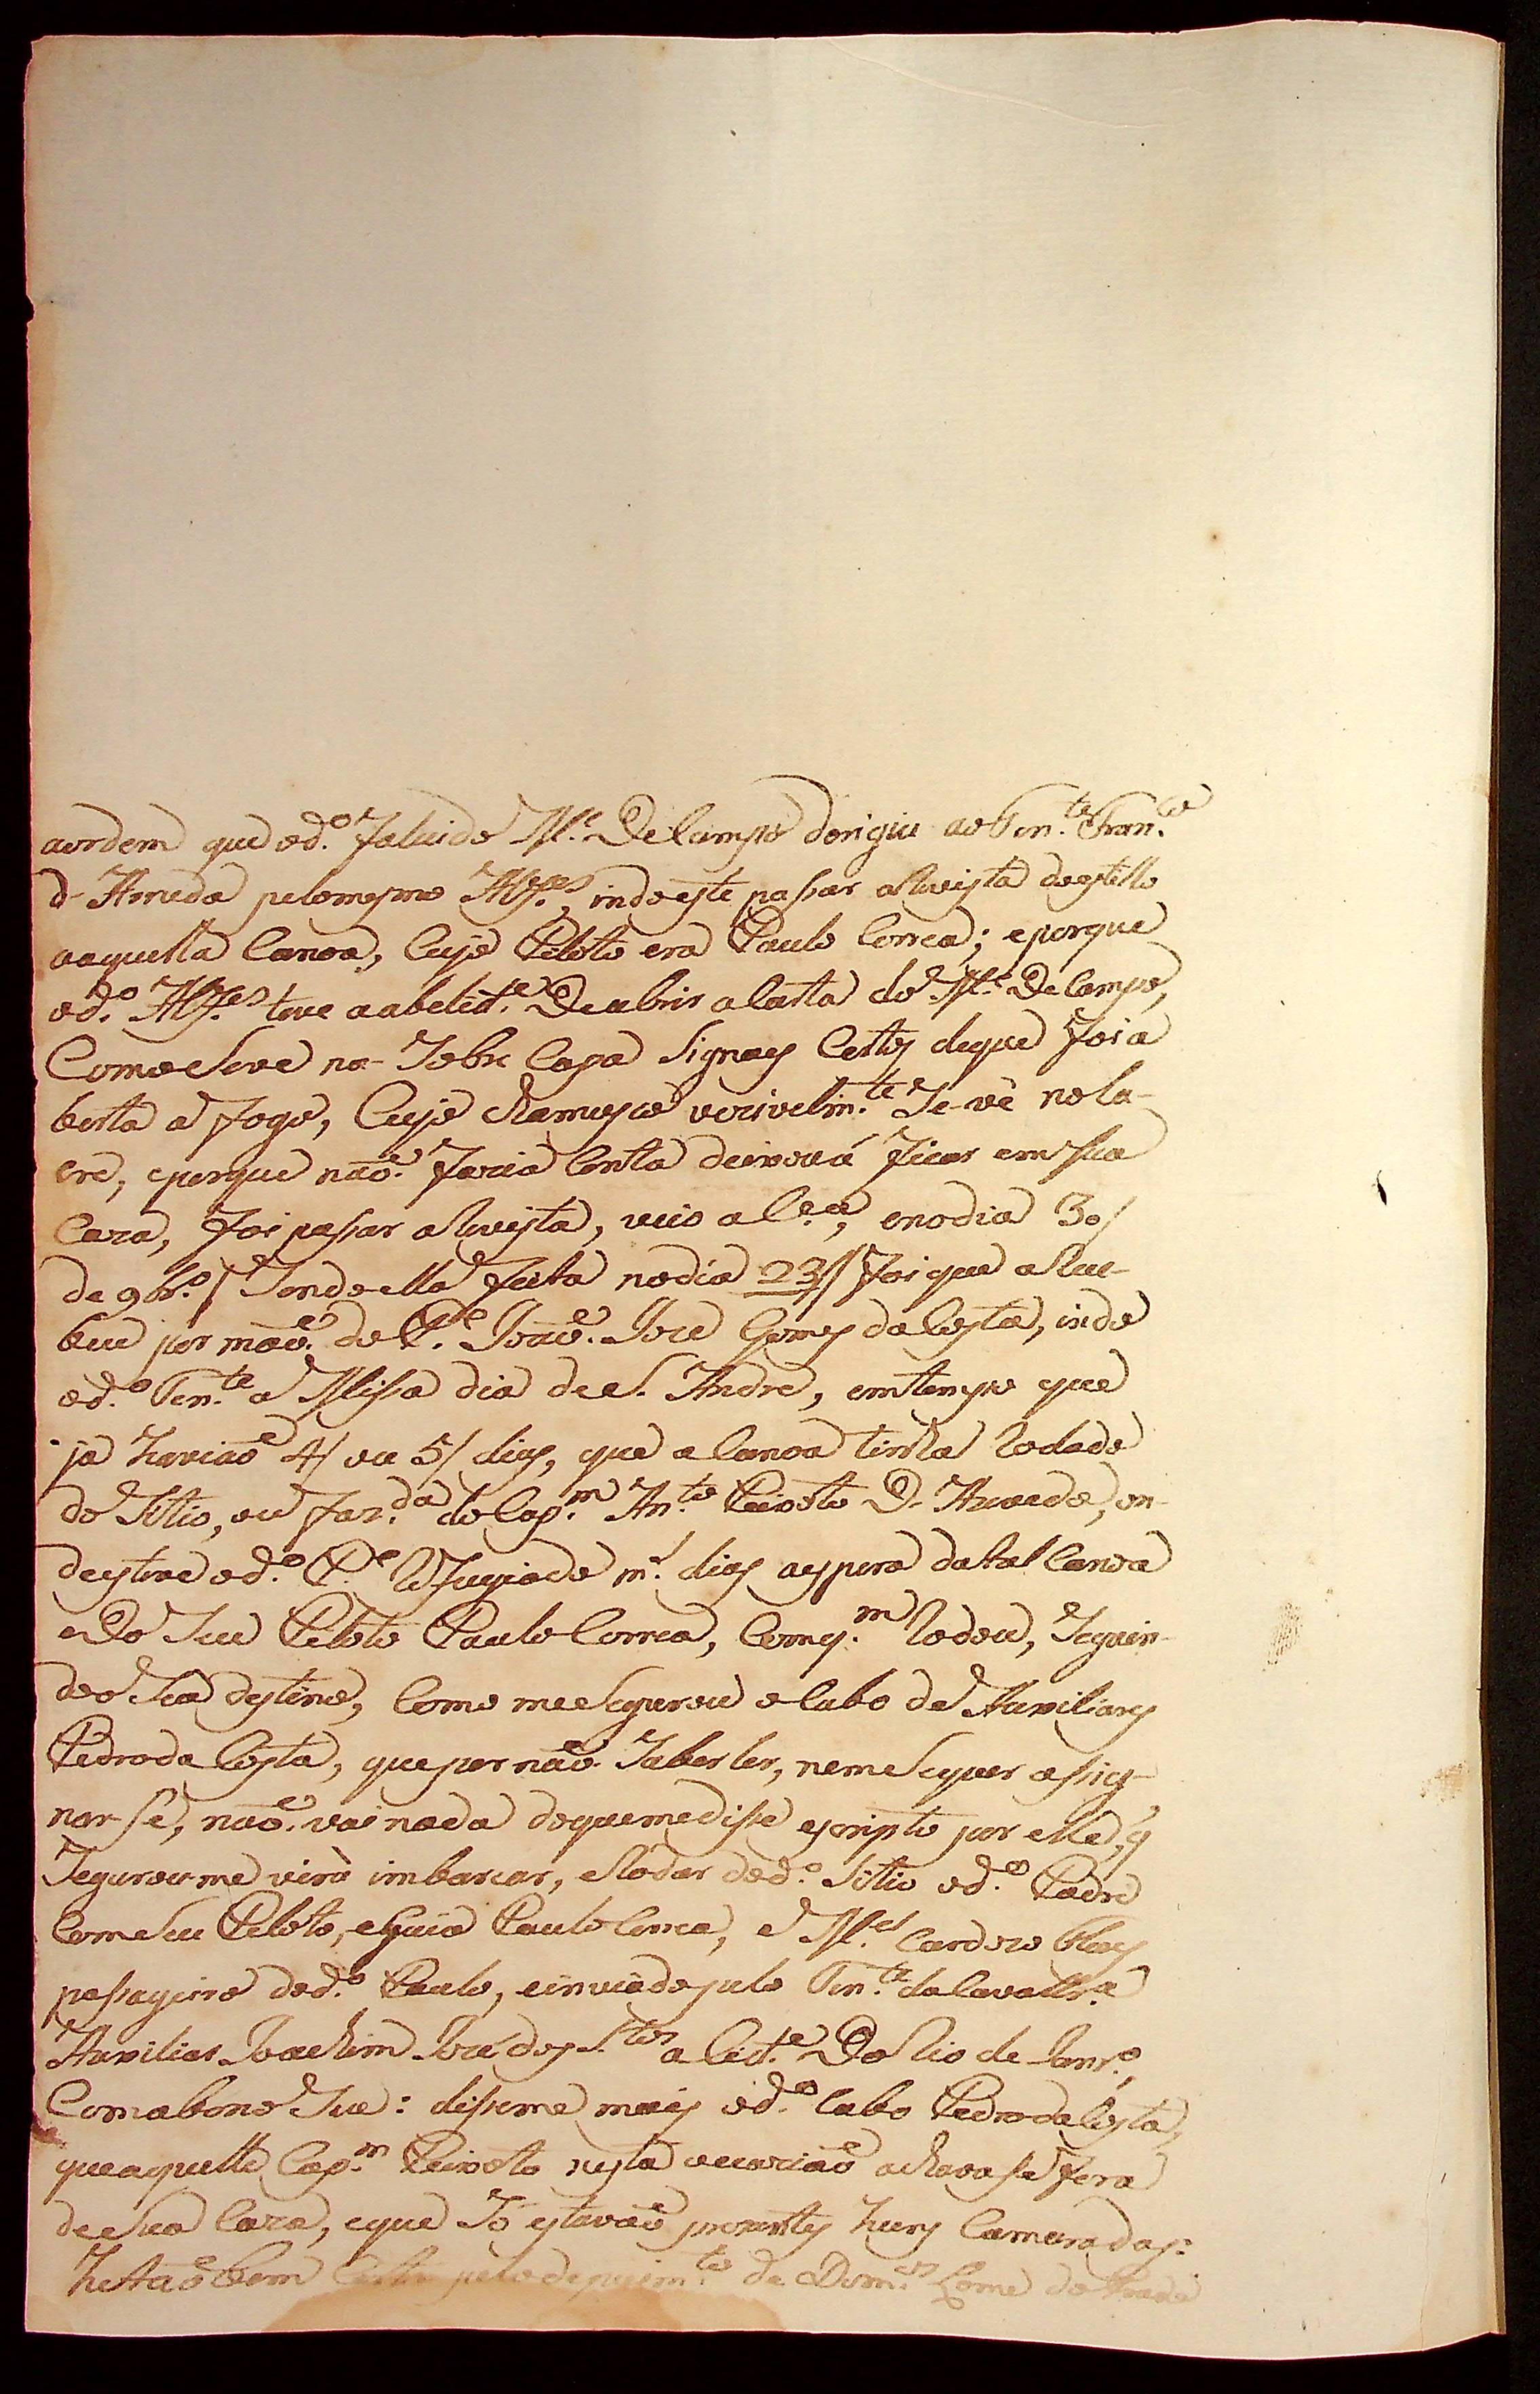 aordem que od.º falecido M.e De Campo derigiu aoTen.te Fran.co
d' Almeda pelomesmo Alf.es, indo este pasar aRevista doestillo
aaquella Canoa, Cujo Piloto era Paulo Correa; eporque
od.º Alf.es teve aabelid.e De abrir aCarta do M.e De Campo,
ComoSeve na Sobre Capa Signaes Certos deque foi a
berta a fogo, Cujo chamusco verivelm.te Se-vè nola-
cre, eporque naõ faria Conta deixová ficar emSua
Caza, foi passar aRevista, veio a C.ª, enodia 30/
de 9br.º / Sendo ella feita nodia 23// foi que aRece-
beu por maõ do P.e Joaõ Joze Gomes daCosta, indo
od.º Ten.te a Missa dia de S. Andre, emtempo que
ja haviaõ 4/ ou 5/ dias, que aCanoa tinha Rodado
do Sitio, ou faz.da do Cap.m An.to Peixoto D' Azevedo, on-
deesteve od.º P.e Refugiado m.s dias aespera datal Canoa
eDo Seu Piloto Paulo Correa, Comq.m Rodou, Seguin-
do o Seu destino, Como meeSegurou oCabo de Auxiliares
Pedro da Costa, que por naõ Saber ler, nemSequer assig-
nar-Se, naõ vai nada doquemedisse escripto por elle, q
Seguroume virà imbarcar, eRodar dod.º Sitio od.º Padre
ComSeu Piloto, eGuia Paulo Correa, e M.el Cardozo
passageiro dod.º Paulo, einviadopelo Ten.te daCavallr.ª
Auxiliar Joachim Joze dos S.tos a Cid.e Do Rio de Janr.º,
Comabono Seu: disseme mais od.º Cabo Pedro da Costa,
queaquelle Cap.m Peixoto nesta occaziaõ achavasse fora
deSua Caza, eque Só estavaõ prezentes huns Camaradas:
He taõbem pelo depoim.to de Dom.os